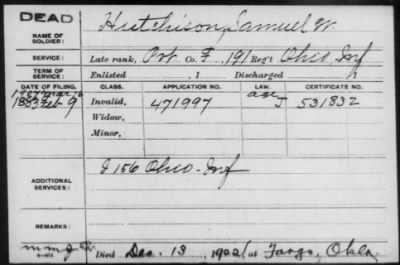 DEAD
NAME OF SOLDIER: Hutchison, Samuel W.
SERVICE: Late rank, Pvt. Co. F, 191 Reg't Ohio Inf
TERM OF SERVICE: Enlisted , 1 Discharged , 1
DATE OF FILING. CLASS. APPLICATION NO. LAW. CERTIFICATE NO.
1883 Feb 9 Invalid, 471997 J 531832
Widow,
Minor,
ADDITIONAL SERVICES: I 156 Ohio Inf
REMARKS:
Died Dec. 13, at Fargo, Okla.